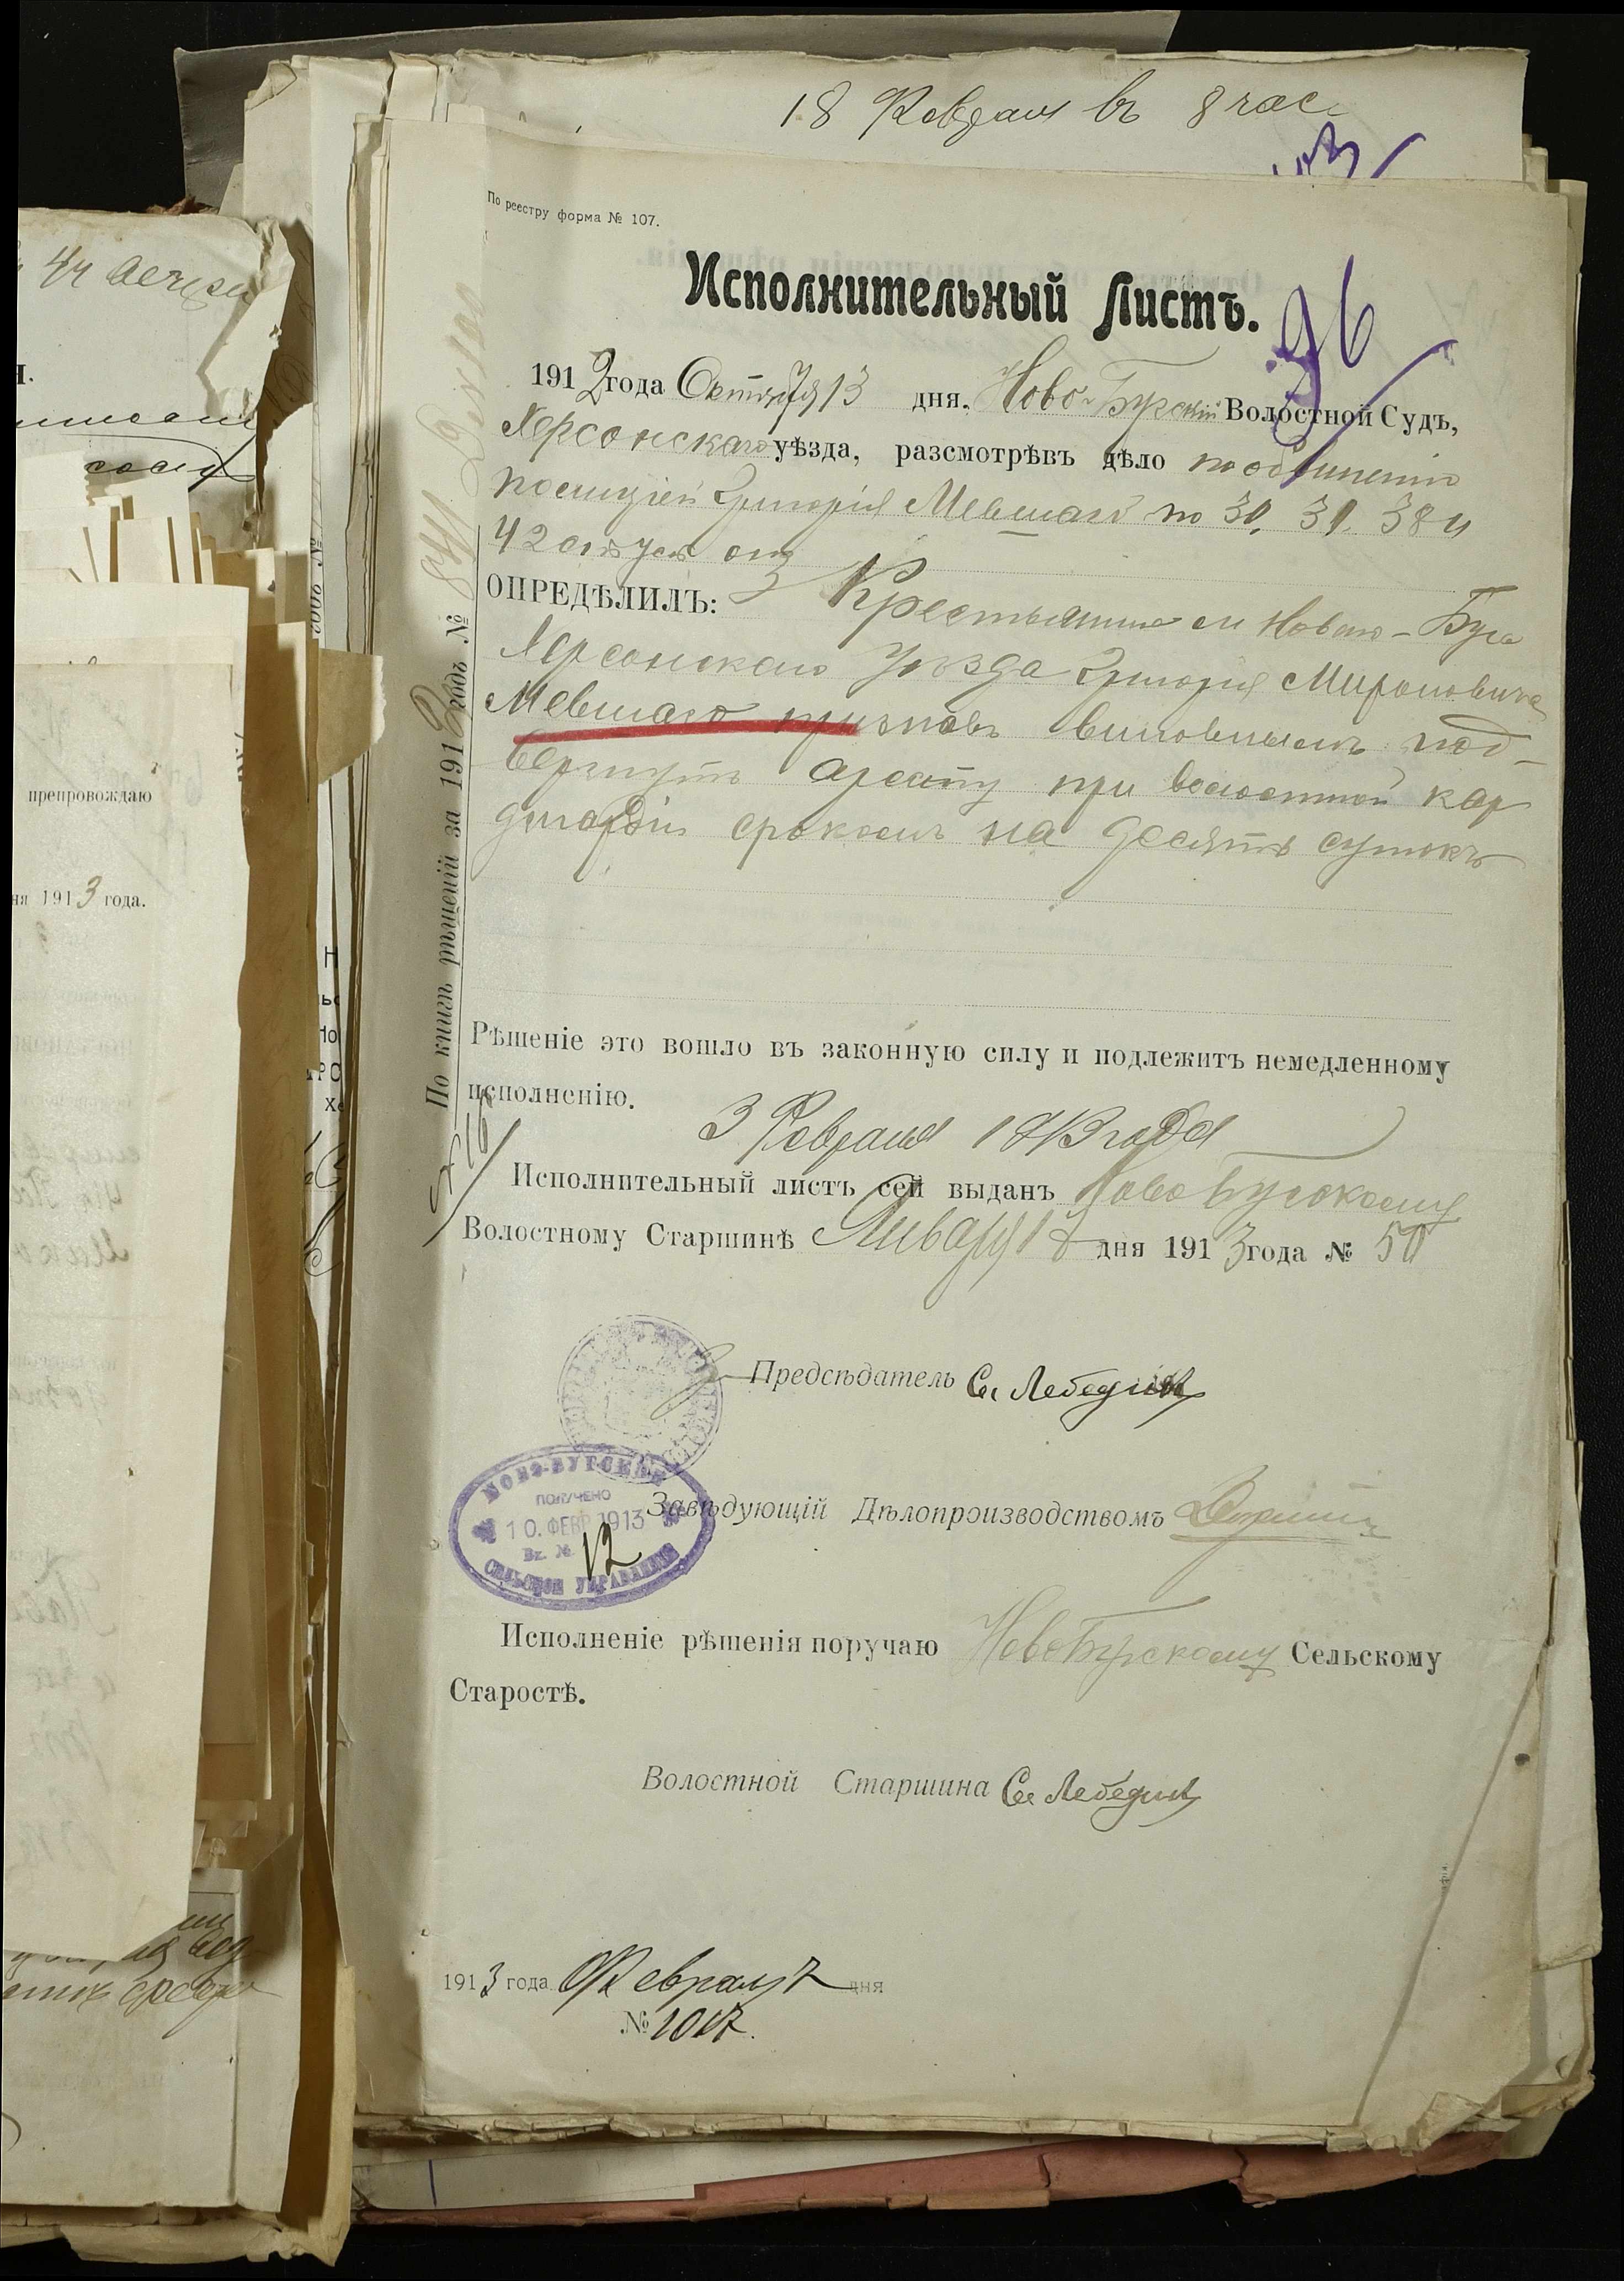 18 Февраля въ 8 час
По реестру форма № 107.
Исполнительный Листъ.
96
1912 года Октября 13 дня. Ново-Бугскій Волостной Судъ,
Херсонскаго уѣзда, разсмотрѣвъ дѣло по обвиненію
полиціей Григорія Мевшаго по 30, 31, 38 и
42 ст уст о нз
ОПРЕДѢЛИЛЪ: Крестьянина м Новаго-Буга
Херсонскаго уѣзда Григорія Мироновича
Мевшаго признавъ виновнымъ под-
вергнуть аресту при волостной кар
дигардіи срокомъ на десять сутокъ
По книгѣ рѣшеній за 1912 годъ №
Рѣшеніе это вошло въ законную силу и подлежитъ немедленному
исполненію.
3 Февраля 1913 года
Исполнительный листъ сей выданъ Ново Бугскому
Волостному Старшинѣ Января 18 дня 1913 года № 50
Предсѣдатель Си Лебедин
НОВО-БУГСКОЕ
ПОЛУЧЕНО
10. ФЕВР 1913
Вх. № 12
СЕЛЬСКОЕ УПРАВЛЕНІЕ
Завѣдующій Дѣлопроизводствомъ
Исполненіе рѣшенія поручаю НовоБугскому Сельскому
Старостѣ.
Волостной Старшина Си Лебедин
1913 года Февраля 7 дня
№ 1017.
препровождаю
ня 1913 года.